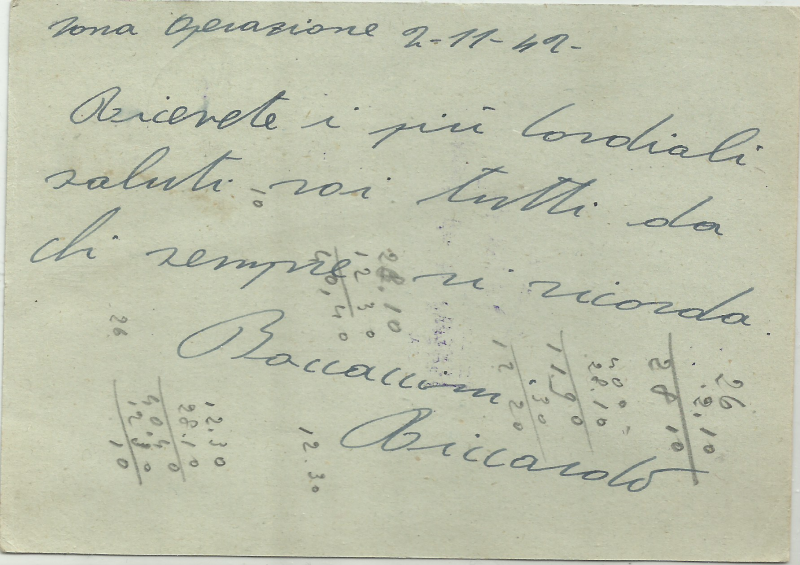 zona operazione 2-11-42-
Ricevete i più cordiali
saluti voi tutti da
chi sempre vi ricorda.
Boccaccini
Riccardo
10
28.10
12.30
40,40
26
12.30
28.10
40.40
12.30
10
12.30
40.0
28.10
11.90
.30
12.20
26
2.10
28.10